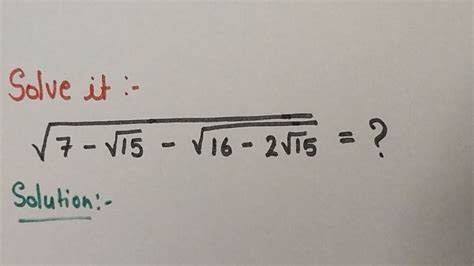 Solve it :-
√(7 - √15 - √(16 - 2√15)) = ?
Solution:-